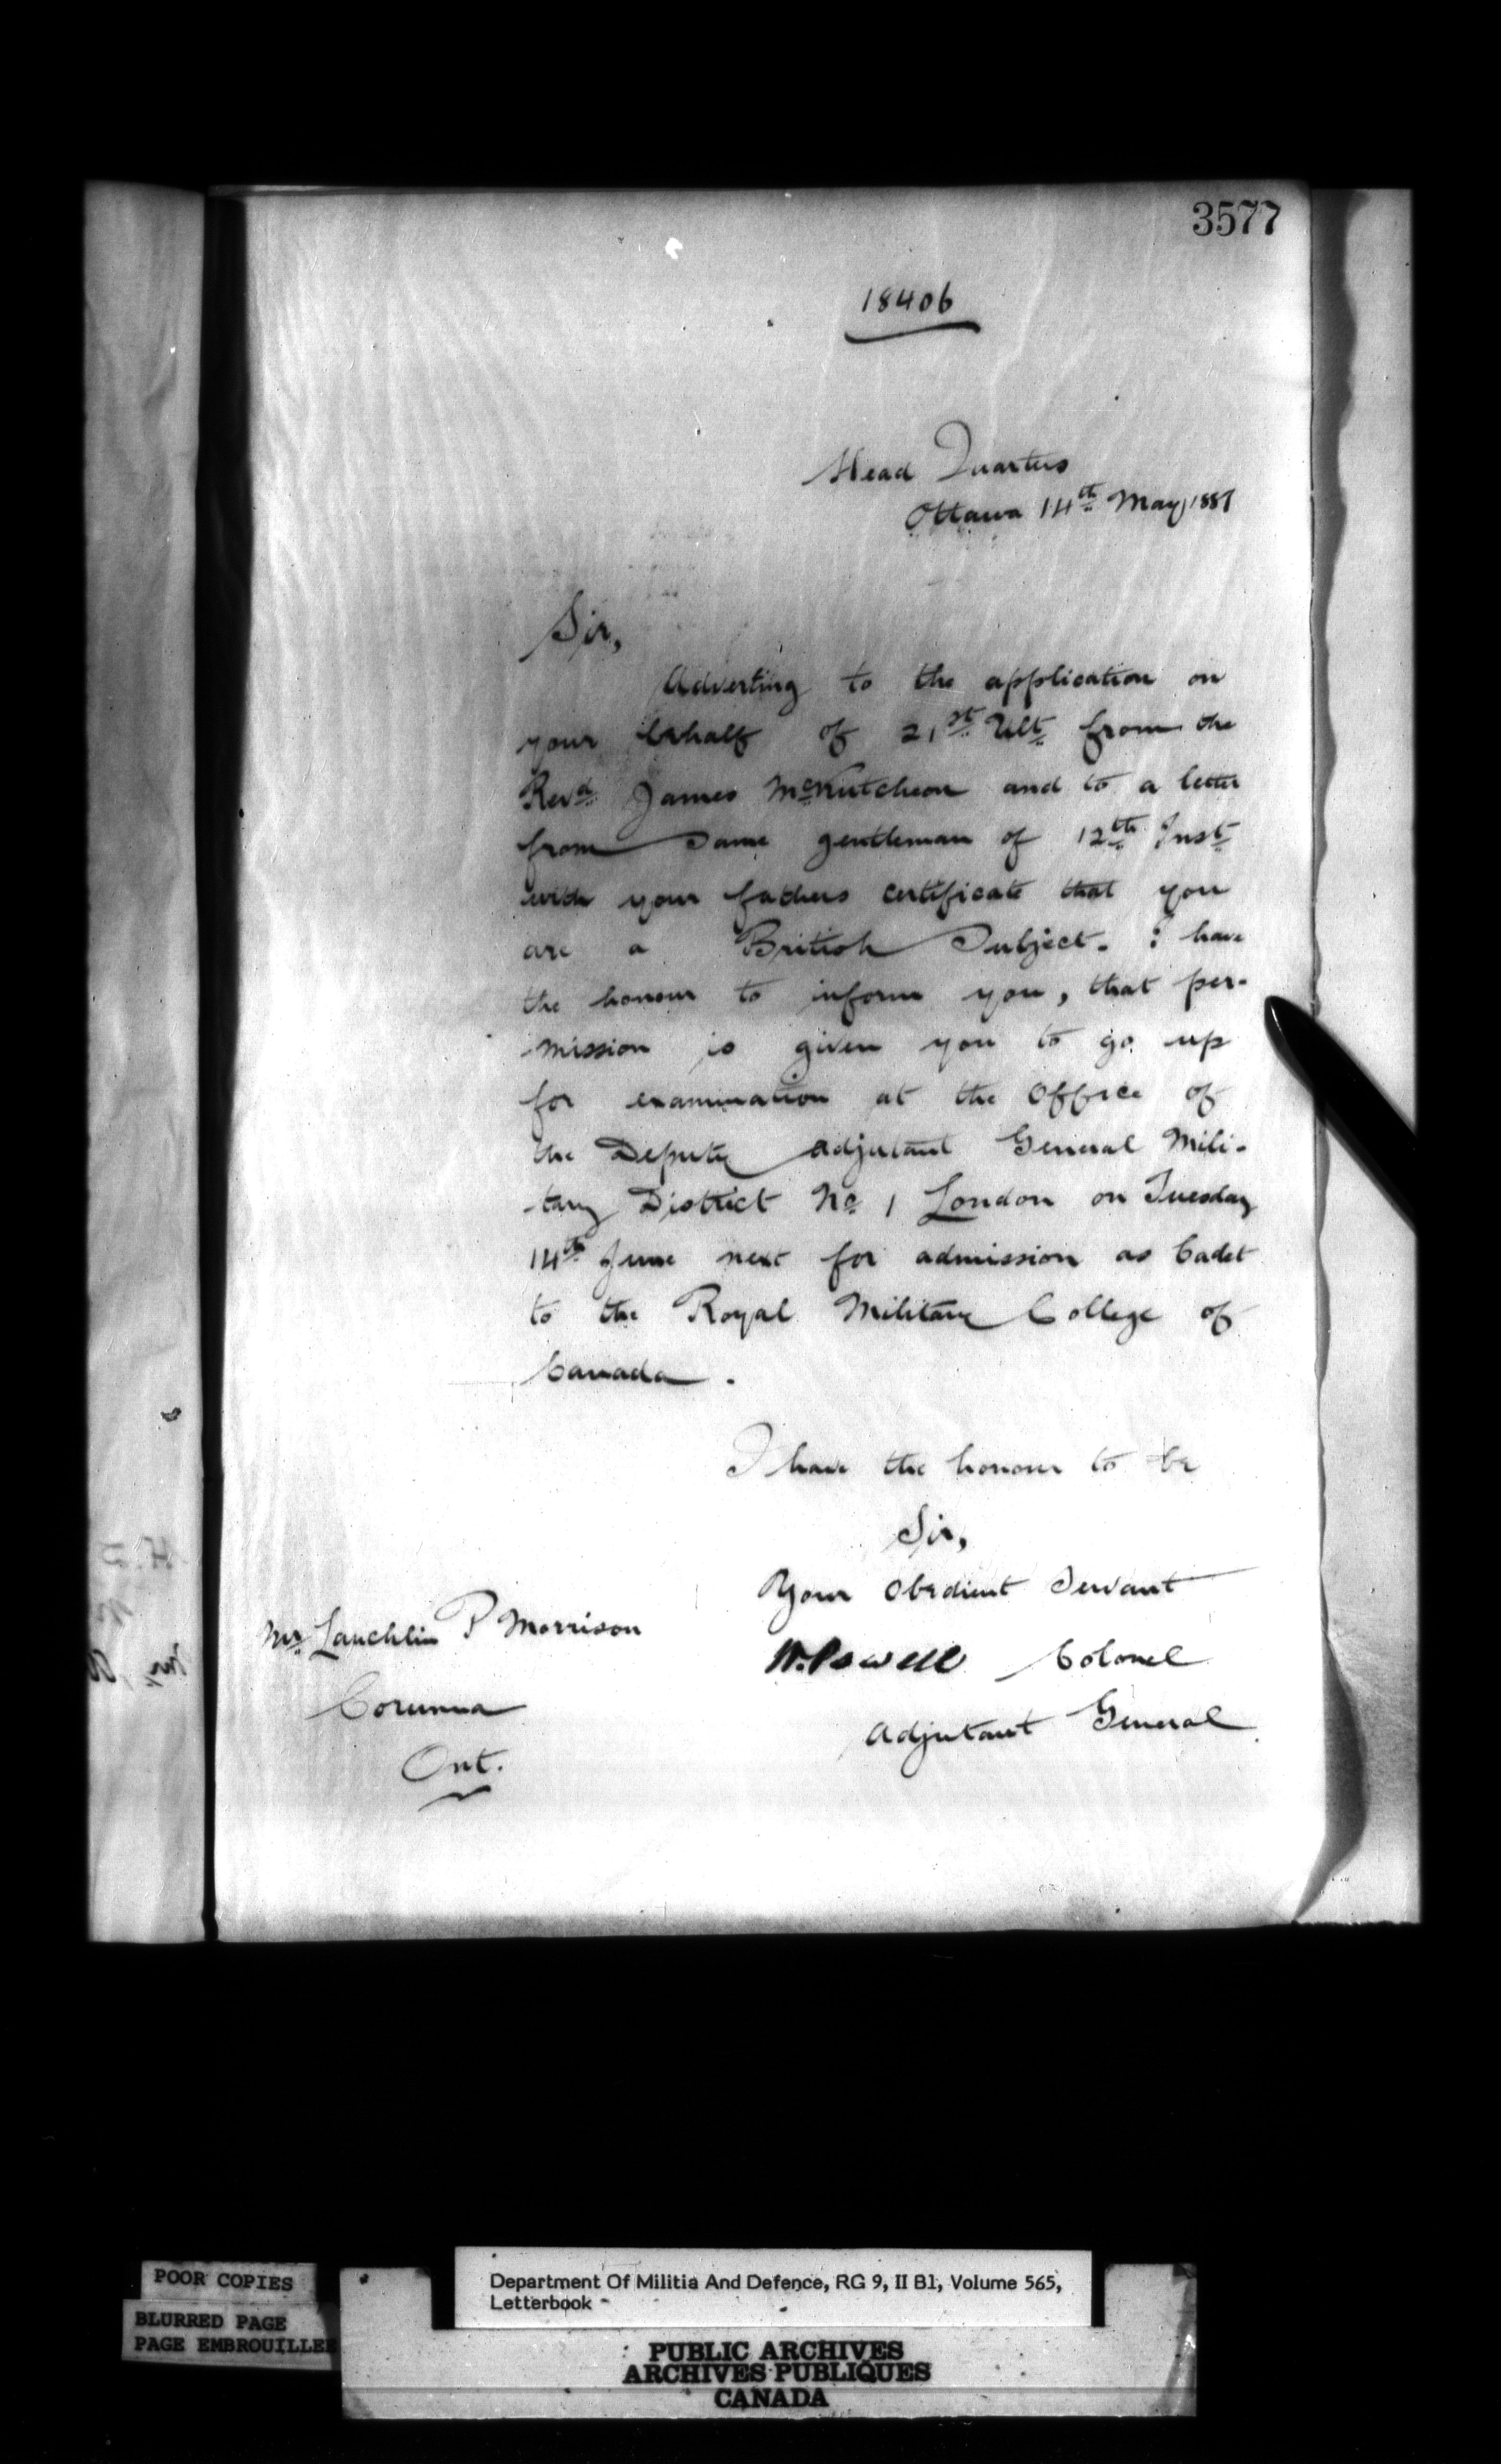 3577
18406
Head Quarters
Ottawa 14th May, 1887
Sir,
Adverting to the application on
your behalf of 21st Ult from the
Revd James McKutcheon and to a letter
from same gentleman of 12th Inst
with your fathers certificate that you
are a British Subject. I have
the honour to inform you, that per-
mission is given you to go up
for examination at the Office of
the Deputy Adjutant General Mili-
tary District No 1 London on Tuesday
14th June next for admission as Cadet
to the Royal Military College of
Canada.
I have the honour to be
Sir,
Your Obedient Servant
W. Powell Colonel
Adjutant General
Mr Lauchlin P Morrison
Corunna
Ont.
POOR COPIES
BLURRED PAGE
PAGE EMBROUILLEE
Department Of Militia And Defence, RG 9, II B1, Volume 565,
Letterbook
PUBLIC ARCHIVES
ARCHIVES PUBLIQUES
CANADA